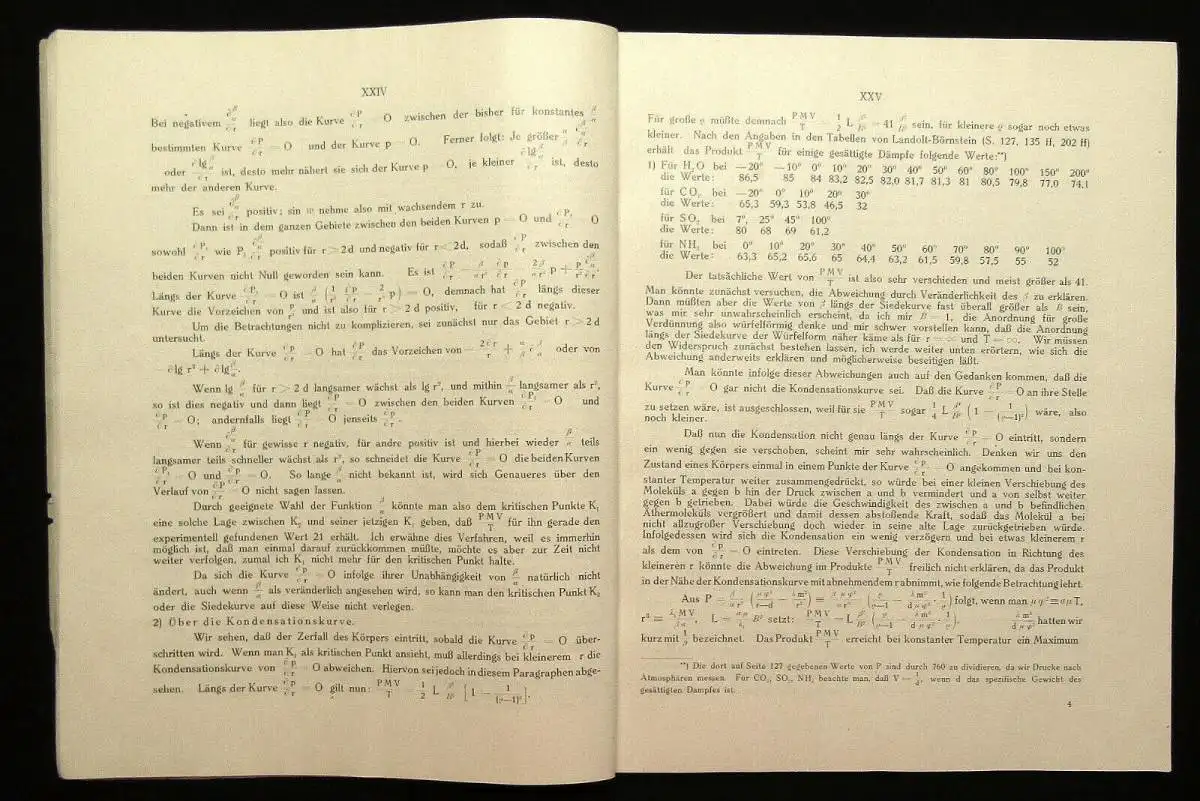 XXIV
Bei negativem ∂(β/α)/∂r liegt also die Kurve ∂P/∂r = O zwischen der bisher für konstantes β/α
bestimmten Kurve ∂P/∂r = O und der Kurve p = O. Ferner folgt: Je größer
oder ist, desto mehr nähert sie sich der Kurve p = O, je kleiner ist, desto
mehr der anderen Kurve.
Es sei positiv; sin nehme also mit wachsendem r zu.
Dann ist in dem ganzen Gebiete zwischen den beiden Kurven p = O und = O
sowohl wie positiv für r > 2d und negativ für r < 2d, sodaß zwischen den
beiden Kurven nicht Null geworden sein kann. Es ist
Längs der Kurve = O ist = O, demnach hat längs dieser
Kurve die Vorzeichen von und ist also für r > 2 d positiv, für r < 2 d negativ.
Um die Betrachtungen nicht zu komplizieren, sei zunächst nur das Gebiet r > 2 d
untersucht.
Längs der Kurve ∂p/∂r = O hat das Vorzeichen von oder von
Wenn lg β/α für r > 2 d langsamer wächst als lg r², und mithin β/α langsamer als r²,
so ist dies negativ und dann liegt = O zwischen den beiden Kurven = O und
= O; andernfalls liegt = O jenseits
Wenn für gewisse r negativ, für andre positiv ist und hierbei wieder β/α teils
langsamer teils schneller wächst als r², so schneidet die Kurve = O die beiden Kurven
= O und = O. So lange β/α nicht bekannt ist, wird sich Genaueres über den
Verlauf von = O nicht sagen lassen.
Durch geeignete Wahl der Funktion β/α könnte man also dem kritischen Punkte K₁
eine solche Lage zwischen K₂ und seiner jetzigen K₁ geben, daß PMV/T für ihn gerade den
experimentell gefundenen Wert 21 erhält. Ich erwähne dies Verfahren, weil es immerhin
möglich ist, daß man einmal darauf zurückkommen müßte, möchte es aber zur Zeit nicht
weiter verfolgen, zumal ich K₁ nicht mehr für den kritischen Punkt halte.
Da sich die Kurve = O infolge ihrer Unabhängigkeit von β/α natürlich nicht
ändert, auch wenn β/α als veränderlich angesehen wird, so kann man den kritischen Punkt K₂
oder die Siedekurve auf diese Weise nicht verlegen.
2) Über die Kondensationskurve.
Wir sehen, daß der Zerfall des Körpers eintritt, sobald die Kurve ∂p/∂r = O über-
schritten wird. Wenn man K₁ als kritischen Punkt ansieht, muß allerdings bei kleinerem r die
Kondensationskurve von ∂p/∂r = O abweichen. Hiervon sei jedoch in diesem Paragraphen abge-
sehen. Längs der Kurve ∂p/∂r = O gilt nun: PMV/T = 1/2 L β/B² [1 − 1/(ϱ−1)²].
XXV
Für große ϱ müßte demnach PMV/T = 1/2 L β/B² = 41 β/B² sein, für kleinere ϱ sogar noch etwas
kleiner. Nach den Angaben in den Tabellen von Landolt-Börnstein (S. 127, 135 ff, 202 ff)
erhält das Produkt PMV/T für einige gesättigte Dämpfe folgende Werte:**)
1) Für H₂O bei −20° −10° 0° 10° 20° 30° 40° 50° 60° 80° 100° 150° 200°
die Werte: 86,5 85 84 83,2 82,5 82,0 81,7 81,3 81 80,5 79,8 77,0 74,1
für CO₂ bei −20° 0° 10° 20° 30°
die Werte: 65,3 59,3 53,8 46,5 32
für SO₂ bei 7°, 25° 45° 100°
die Werte: 80 68 69 61,2
für NH₃ bei 0° 10° 20° 30° 40° 50° 60° 70° 80° 90° 100°
die Werte: 63,3 65,2 65,6 65 64,4 63,2 61,5 59,8 57,5 55 52
Der tatsächliche Wert von PMV/T ist also sehr verschieden und meist größer als 41.
Man könnte zunächst versuchen, die Abweichung durch Veränderlichkeit des β zu erklären.
Dann müßten aber die Werte von β längs der Siedekurve fast überall größer als B sein,
was mir sehr unwahrscheinlich erscheint, da ich mir B = 1, die Anordnung für große
Verdünnung also würfelförmig denke und mir schwer vorstellen kann, daß die Anordnung
längs der Siedekurve der Würfelform näher käme als für r = ∞ und T = ∞. Wir müssen
den Widerspruch zunächst bestehen lassen, ich werde weiter unten erörtern, wie sich die
Abweichung anderweits erklären und möglicherweise beseitigen läßt.
Man könnte infolge dieser Abweichungen auch auf den Gedanken kommen, daß die
Kurve ∂p/∂r = O gar nicht die Kondensationskurve sei. Daß die Kurve = O an ihre Stelle
zu setzen wäre, ist ausgeschlossen, weil für sie PMV/T sogar 1/4 L β/B² (1 − 1/(ϱ−1)²) wäre, also
noch kleiner.
Daß nun die Kondensation nicht genau längs der Kurve ∂p/∂r = O eintritt, sondern
ein wenig gegen sie verschoben, scheint mir sehr wahrscheinlich. Denken wir uns den
Zustand eines Körpers einmal in einem Punkte der Kurve ∂p/∂r = O angekommen und bei kon-
stanter Temperatur weiter zusammengedrückt, so würde bei einer kleinen Verschiebung des
Moleküls a gegen b hin der Druck zwischen a und b vermindert und a von selbst weiter
gegen b getrieben. Dabei würde die Geschwindigkeit des zwischen a und b befindlichen
Äthermoleküls vergrößert und damit dessen abstoßende Kraft, sodaß das Molekül a bei
nicht allzugroßer Verschiebung doch wieder in seine alte Lage zurückgetrieben würde.
Infolgedessen wird sich die Kondensation ein wenig verzögern und bei etwas kleinerem r
als dem von ∂p/∂r = O eintreten. Diese Verschiebung der Kondensation in Richtung des
kleineren r könnte die Abweichung im Produkte PMV/T freilich nicht erklären, da das Produkt
in der Nähe der Kondensationskurve mit abnehmendem r abnimmt, wie folgende Betrachtung lehrt.
Aus P = folgt, wenn man μφ² = αμT,
r³ = , L = setzt: PMV/T = hatten wir
kurz mit bezeichnet. Das Produkt PMV/T erreicht bei konstanter Temperatur ein Maximum
**) Die dort auf Seite 127 gegebenen Werte von P sind durch 760 zu dividieren, da wir Drucke nach
Atmosphären messen. Für CO₂, SO₂, NH₃ beachte man, daß V = 1/d, wenn d das spezifische Gewicht des
gesättigten Dampfes ist.
4